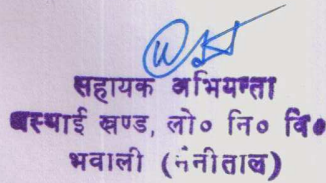 सहायक अभियन्ता
अस्थाई खण्ड, लो० नि० वि०
भवाली (नैनीताल)